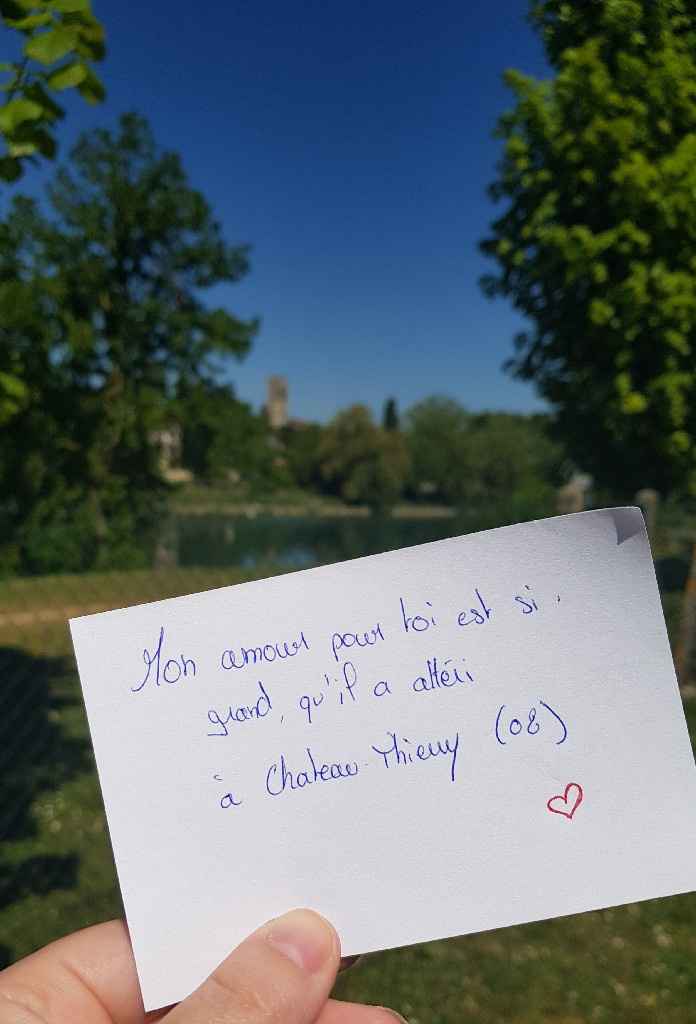 Mon amour pour toi est si
grand, qu'il a attéri
à Chateau-Thierry (08)